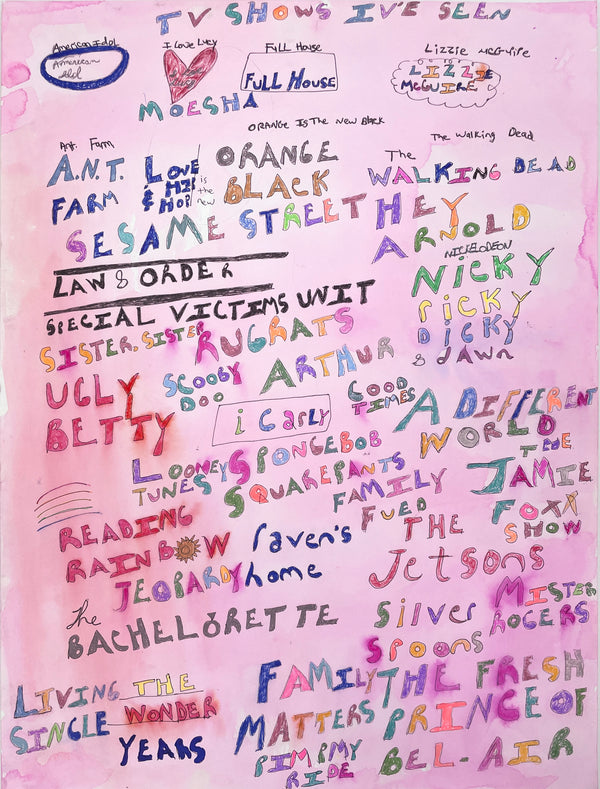 TV SHOWS I'VE SEEN
American Idol
American
idol
I Love Lucy
Full House
FULL HOUSE
Lizzie McGuire
LIZZIE
MCGUIRE
MOESHA
ORANGE IS The New Black
Ant. Farm
A.N.T.
FARM
LOVE
& HIP
HOP
ORANGE
is
the
new
BLACK
The Walking Dead
The
WALKING DEAD
SESAME STREET
HEY
ARNOLD
LAW & ORDER
SPECIAL VICTIMS UNIT
NICKELODEON
NICKY
RICKY
DICKY
& DAWN
SISTER, SISTER
RUGRATS
UGLY
BETTY
SCOOBY
DOO
ARTHUR
i Carly
GOOD
TIMES
A DIFFERENT
WORLD
LOONEY
TUNES
SPONGEBOB
SQUAREPANTS
FAMILY
FUED
THE
JAMIE
FOXX
SHOW
READING
RAINBOW
raven's
home
THE
JETSONS
JEOPARDY
The
BACHELORETTE
Silver
Spoons
MISTER
ROGERS
LIVING
SINGLE
THE
WONDER
YEARS
FAMILY
MATTERS
THE FRESH
PRINCE OF
BEL-AIR
PIMP MY
RIDE